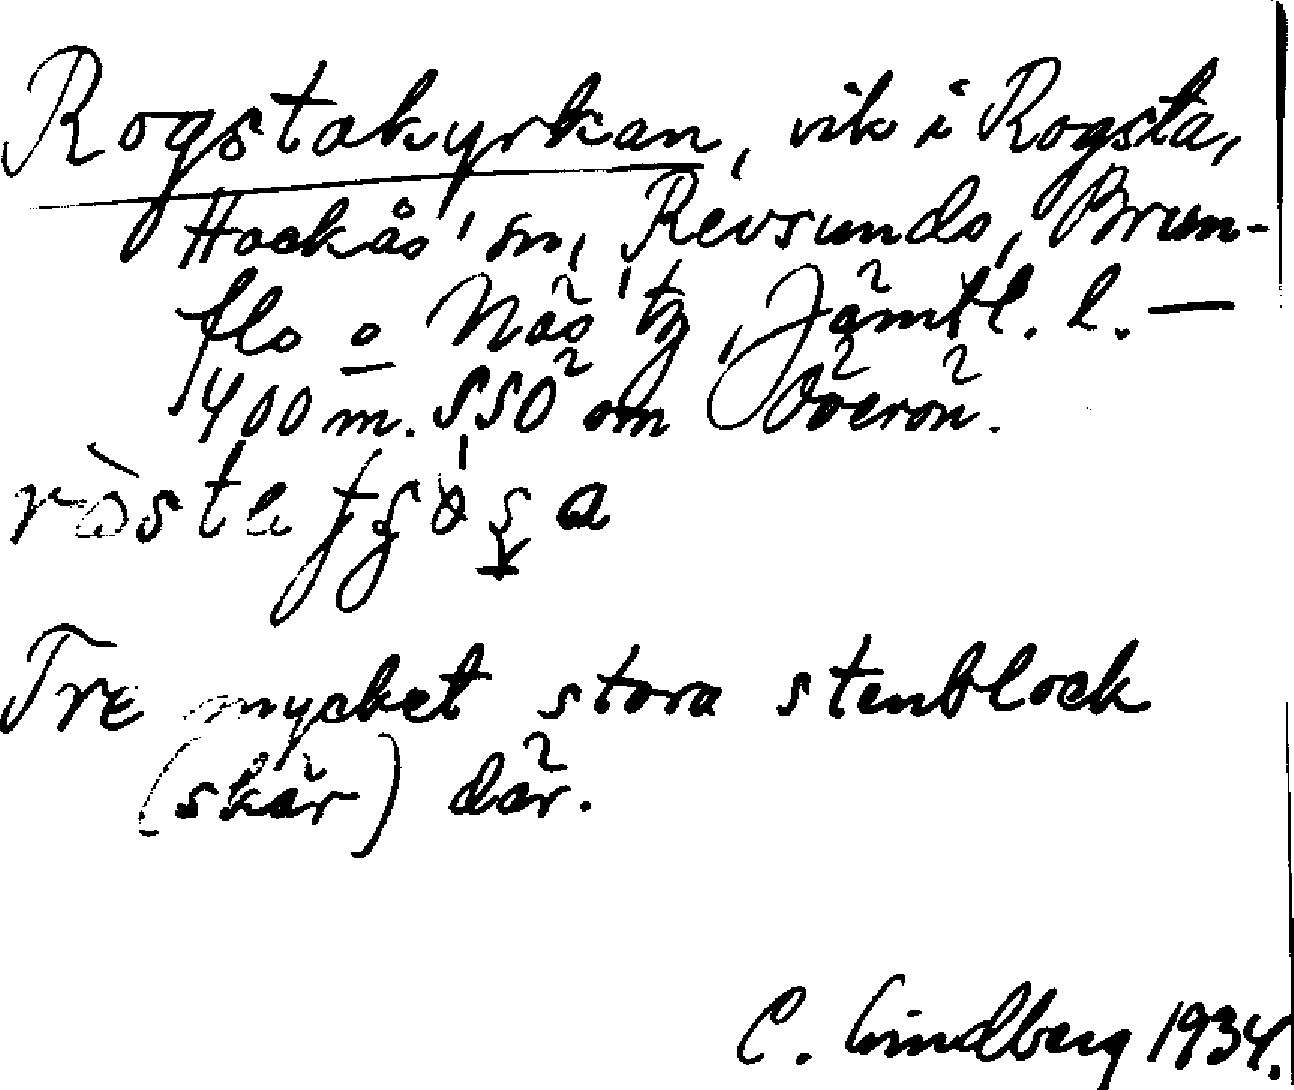 Rogstakyrkan, vik i Rogsta,
Hackås sn, Revsunds, Brun-
flo o Näs tg, Jämtl. l. —
400 m. SSO om Överön.
Tre mycket stora stenblock
(skär) där.
C. Lindberg 1934.